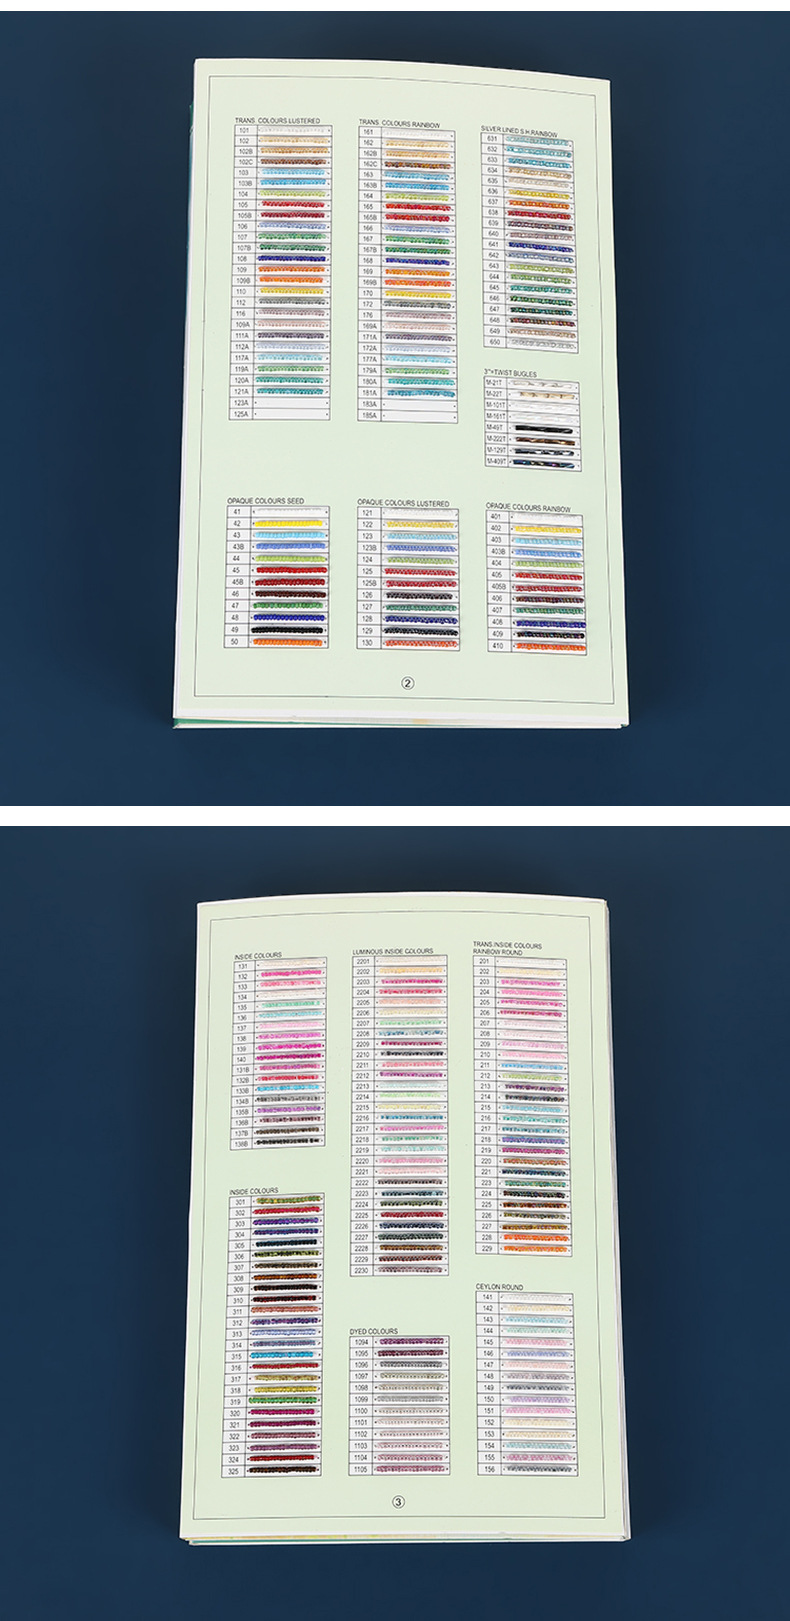 TRANS. COLOURS LUSTERED
101
102
102B
102C
103
103B
104
105
105B
106
107
107B
108
109
109B
110
112
116
109A
111A
112A
117A
119A
120A
121A
123A
125A
TRANS. COLOURS RAINBOW
161
162
162B
162C
163
163B
164
165
165B
166
167
167B
168
169
169B
170
172
176
169A
171A
172A
177A
179A
180A
181A
183A
185A
SILVER LINED S.H.RAINBOW
631
632
633
634
635
636
637
638
639
640
641
642
643
644
645
646
647
648
649
650
3"×TWIST BUGLES
M-21T
M-22T
M-101T
M-161T
M-49T
M-222T
M-129T
M-409T
OPAQUE COLOURS SEED
41
42
43
43B
44
45
45B
46
47
48
49
50
OPAQUE COLOURS LUSTERED
121
122
123
123B
124
125
125B
126
127
128
129
130
OPAQUE COLOURS RAINBOW
401
402
403
403B
404
405
405B
406
407
408
409
410
2
INSIDE COLOURS
131
132
133
134
135
136
137
138
139
140
131B
132B
133B
134B
135B
136B
137B
138B
INSIDE COLOURS
301
302
303
304
305
306
307
308
309
310
311
312
313
314
315
316
317
318
319
320
321
322
323
324
325
LUMINOUS INSIDE COLOURS
2201
2202
2203
2204
2205
2206
2207
2208
2209
2210
2211
2212
2213
2214
2215
2216
2217
2218
2219
2220
2221
2222
2223
2224
2225
2226
2227
2228
2229
2230
DYED COLOURS
1094
1095
1096
1097
1098
1099
1100
1101
1102
1103
1104
1105
TRANS.INSIDE COLOURS
RAINBOW ROUND
201
202
203
204
205
206
207
208
209
210
211
212
213
214
215
216
217
218
219
220
221
223
224
225
226
227
228
229
CEYLON ROUND
141
142
143
144
145
146
147
148
149
150
151
152
153
154
155
156
3